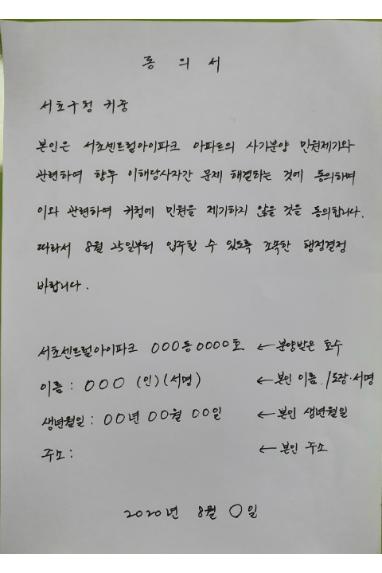 동 의 서
서초구청 귀중
본인은 서초센트럴아이파크 아파트의 사기분양 민원제기와
관련하여 향후 이해당사자간 문제 해결하는 것에 동의하며
이와 관련하여 귀청에 민원을 제기하지 않을 것을 동의합니다.
따라서 8월 25일부터 입주할 수 있도록 조속한 행정결정
바랍니다.
서초센트럴아이파크 000동0000호 ← 분양받은 호수
이름 : 000 (인)(서명) ← 본인 이름 /도장·서명
생년월일 : 00년 00월 00일 ← 본인 생년월일
주소 : ← 본인 주소
2020년 8월 0일